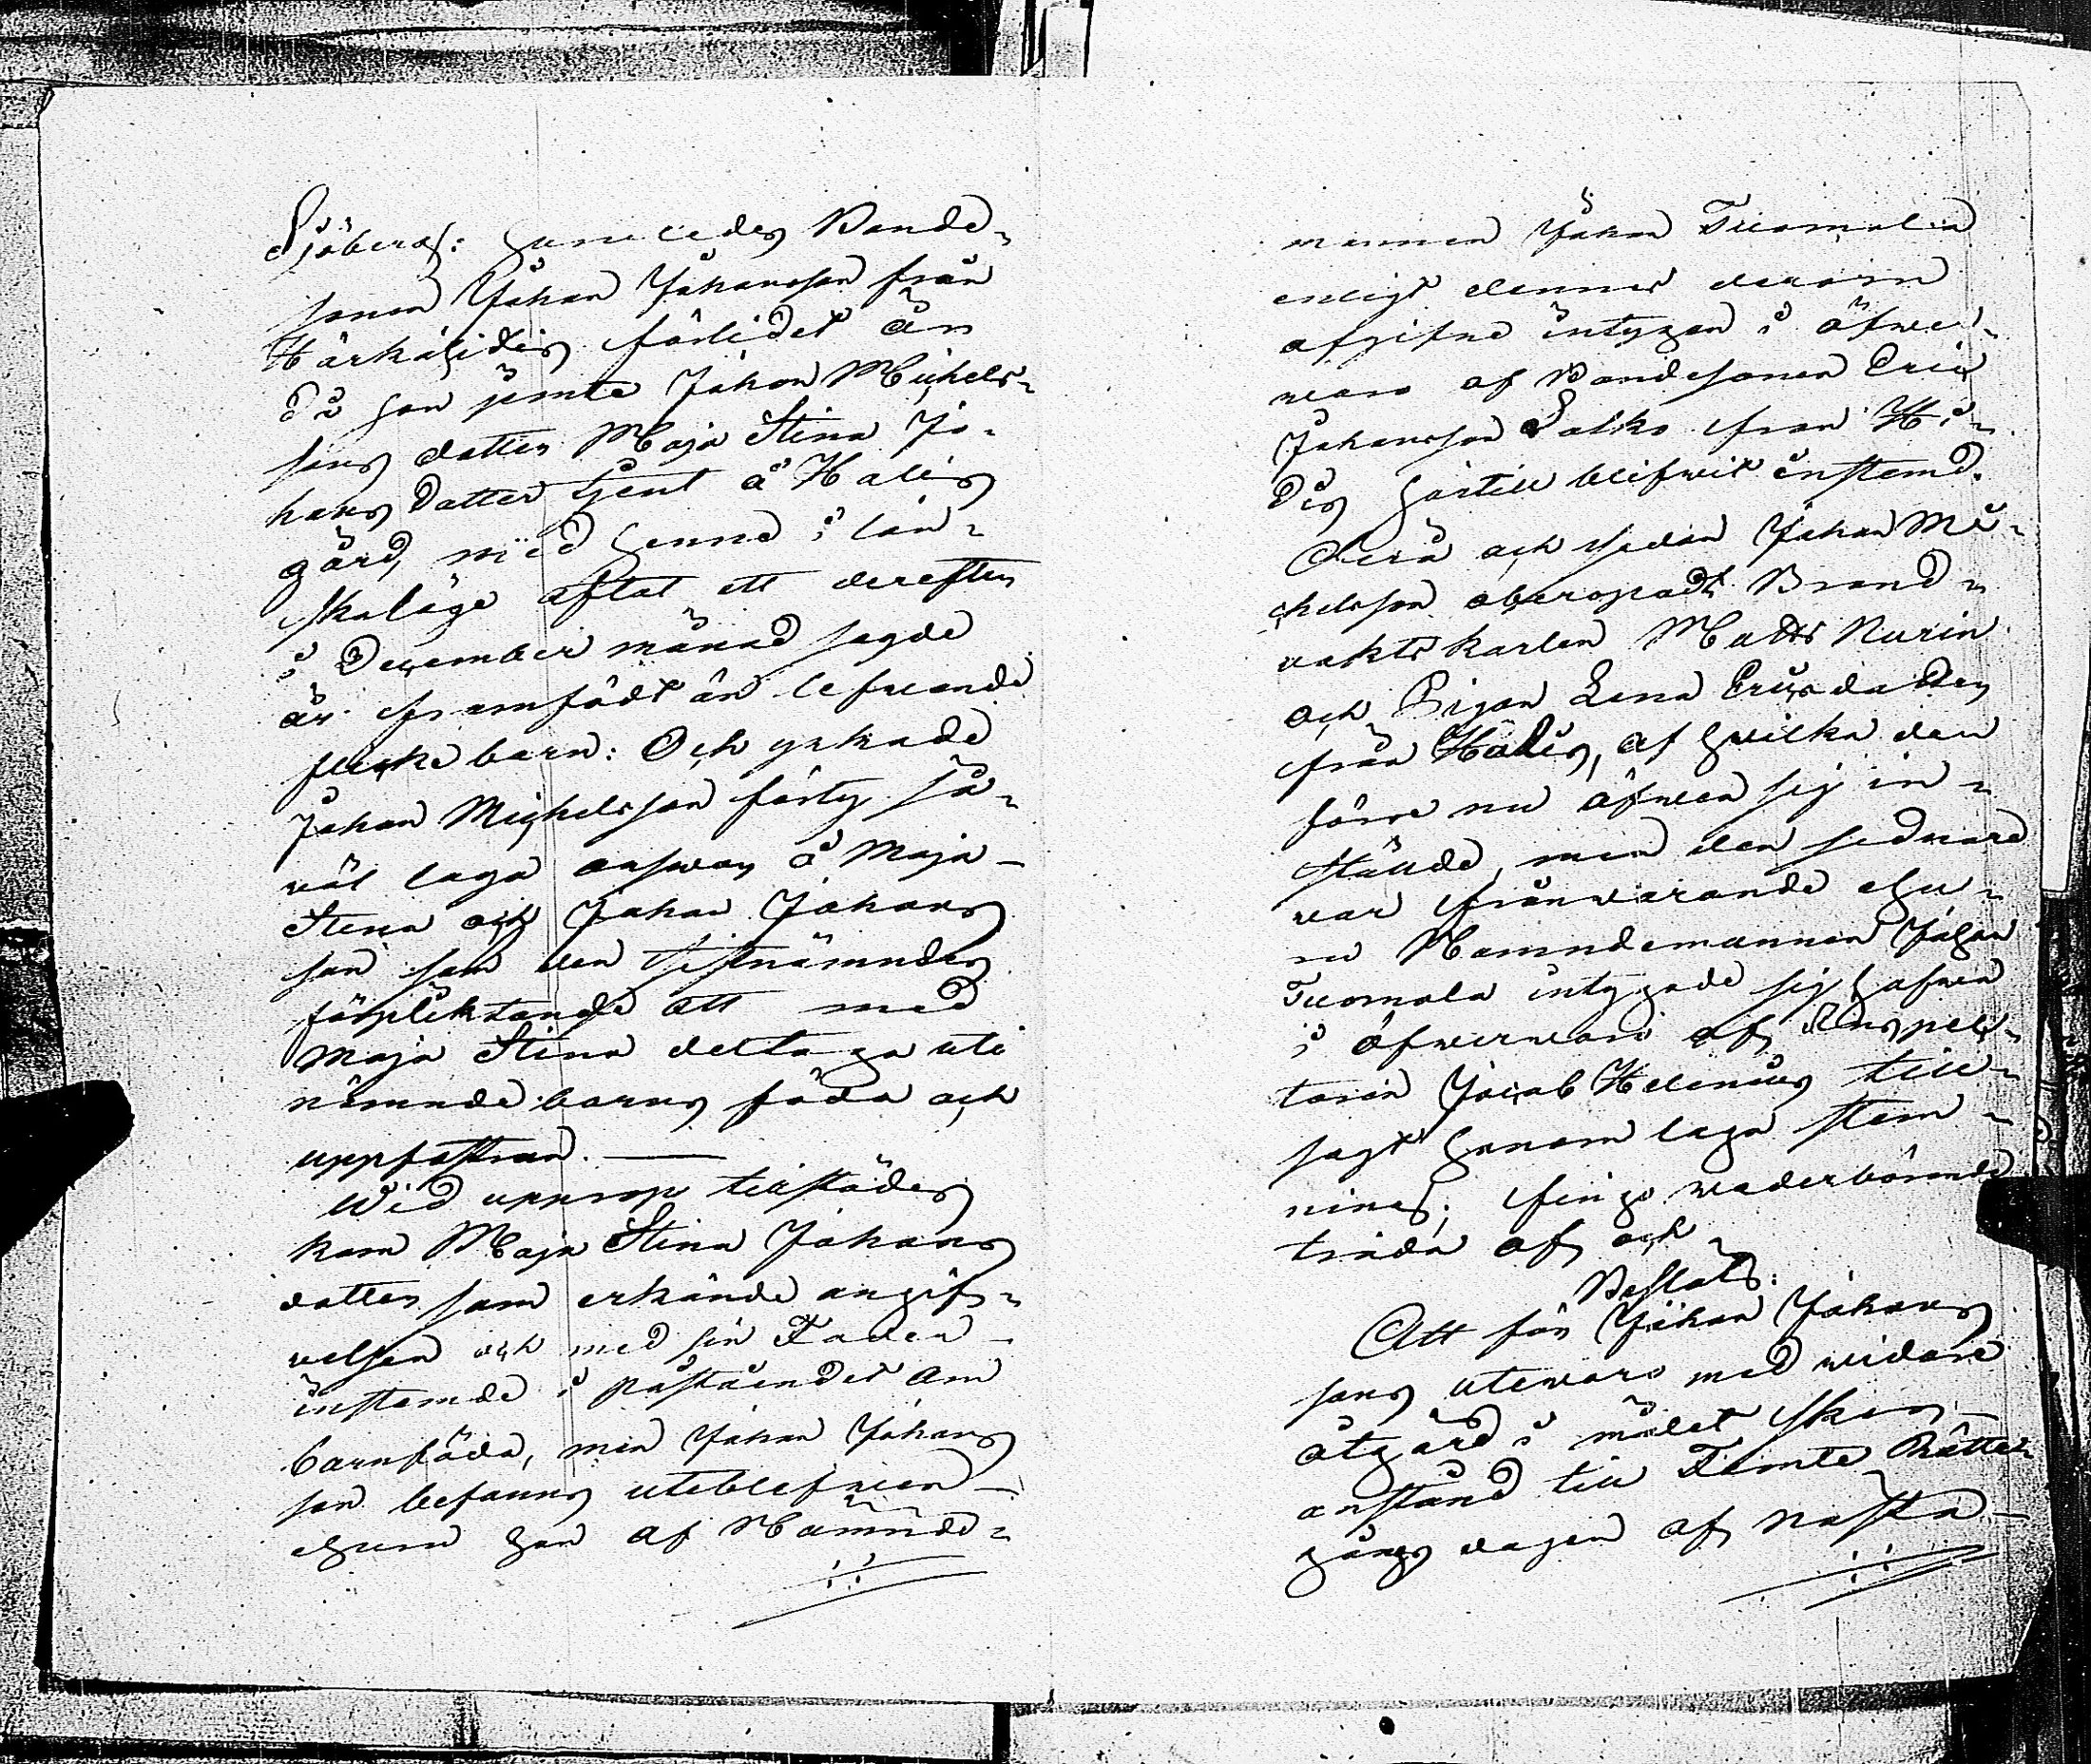 Sjöberg: huruledes Bonde-
sonen Johan Johansson från
Härkäpidis förlidet år
då han jemte Johan Michels-
sons dotter Maja Stina Jo-
hans dotter tjent å Halis
gård, med henne i lön-
skaläge aflat ett derefter
i December månad sagde
år framfödt än lefwande
flicke barn: Och yrkade
Johan Michelsson förty så-
väl laga answar å Maja
Stina och Johan Johans
son som den sistnämndes
förpliktande att med
Maja Stina deltaga uti
nämnde barns föda och
uppfostran. —
Wid upprop tillstädes
kom Maja Stina Johans
dotter som erkände angif-
velsen och med sin Fader
instemde i påståendet om
barnföda, men Johan Johans
son befanns uteblefwen
ehuru han af Nämnde-
mannen Johan Tuomola
enligt dennes derom
afgifne intygan i öfwer-
waro af Bondesonen Eric
Johansson Palko från Hä-
dis härtill blifwit instemd.
Dera och sedan Johan Mi-
chelsson åberopadt Brand-
vaktskarlen Matts Norin
och Pigan Lena Ericsdotter
från Hadis, af hwilka den
förre nu äfwen sig in-
stälde, men den sednare
war frånwarande ehu-
ru Namndemannen Johan
Tuomola intygade sig hafwa
i öfwerwaro af Inspek-
toren Jacob Helenius till-
sagt henom laga stem-
ning; fingo wederbörande
träda af och
Beslöts:
Att för Johan Johans
sons utewaro med widare
åtgärd i målet sker
anstånd till Femte Rätte-
gångs dagen af nästa